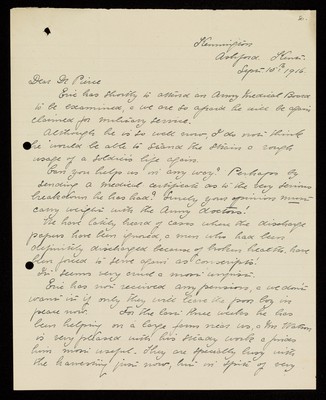 2.
Kennington
Ashford Kent.
Sept 10th 1916.
Dear Dr Pierce
Eric has shortly to attend an Army Medical Board
to be examined, & we are so afraid he will be again
claimed for military service.
Although he is so well now, I do not think
he would be able to stand the strain & rough
usage of a soldier's life again.
Can you help us in any way? Perhaps by
sending a medical certificate as to the very serious
breakdown he has had? Surely your opinion must
carry weight with the Army doctors.
We have lately heard of cases where the discharge
papers have been ignored, & men who had been
definitely discharged because of broken health have
been forced to serve again as conscripts!
It seems very cruel & most unjust.
Eric has not received any pension, & we don't
want it if only they will leave the poor boy in
peace now. For the last three weeks he has
been helping on a large farm near us, & Mr Watson
is very pleased with his steady work & finds
him most useful. They are specially busy with
the harvesting just now, but in spite of very